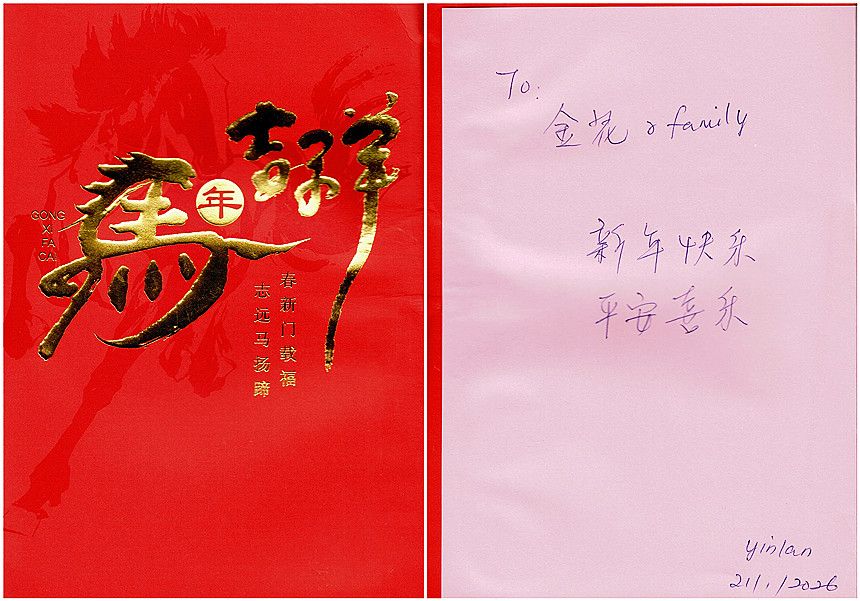 吉祥
馬年
GONG
XI
FA
CAI
春新门载福
志远马扬蹄
To:
金花 & family
新年快乐
平安喜乐
yinlan
21/1/2026